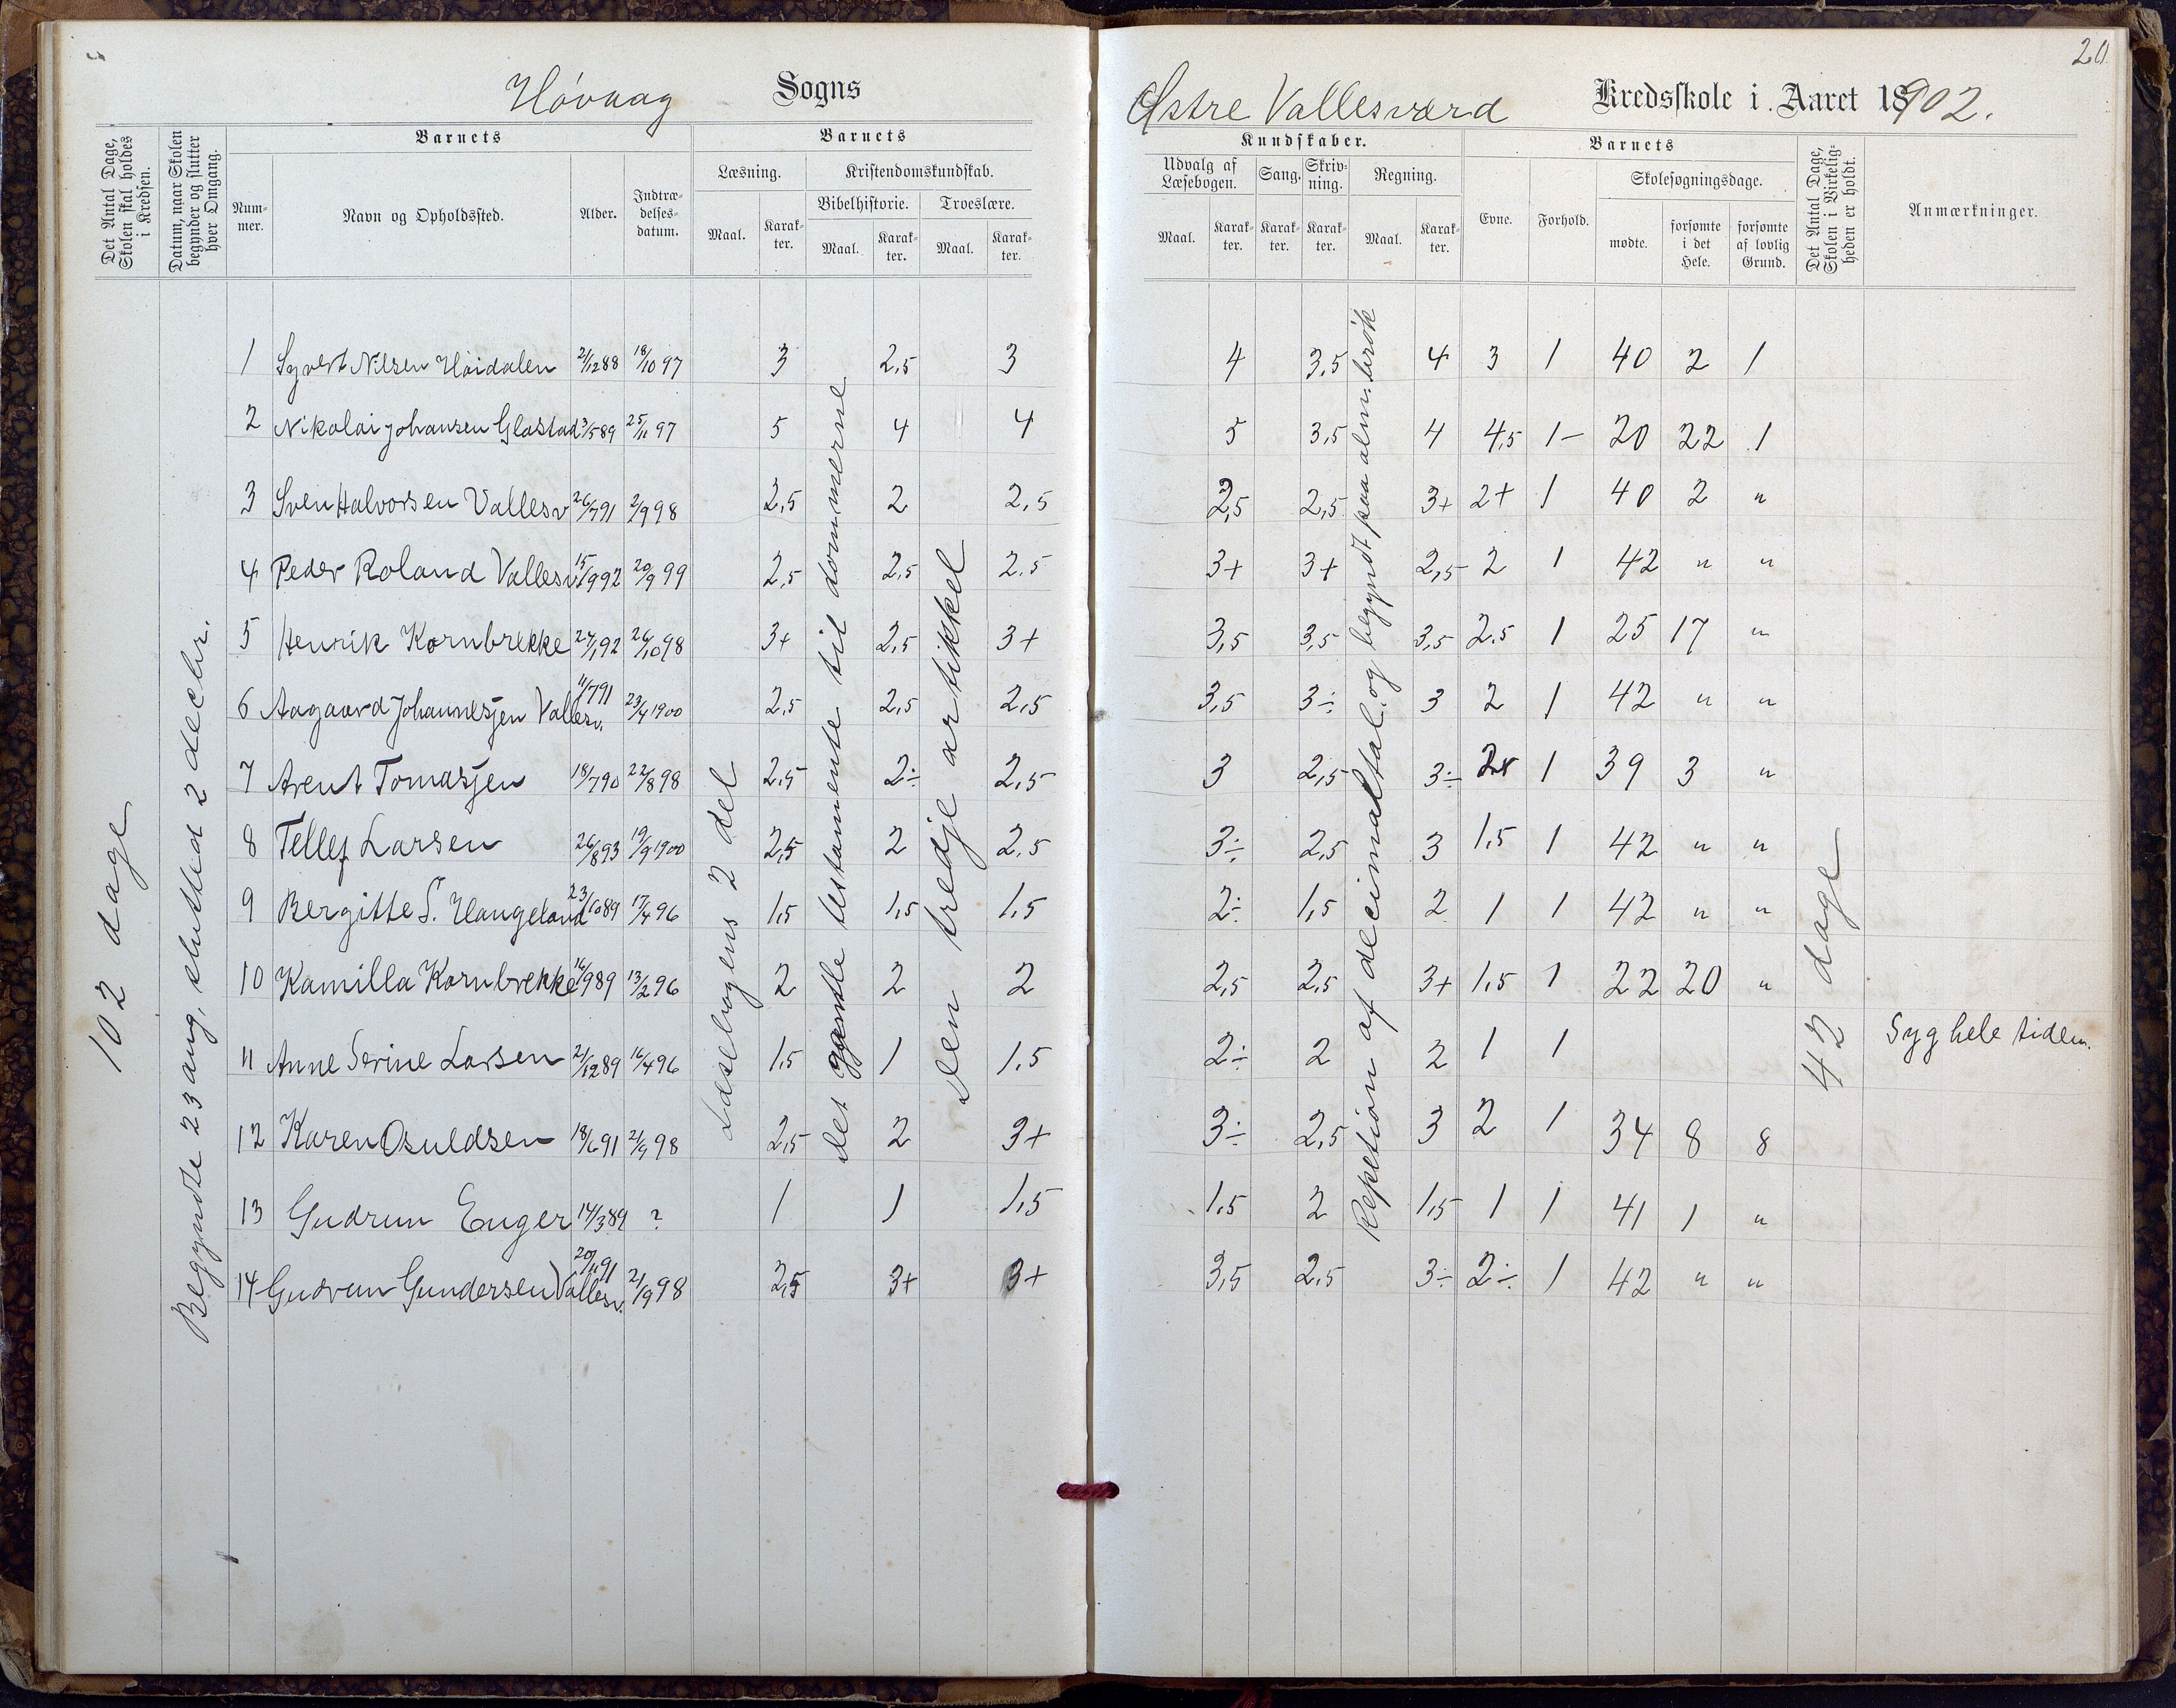 Høvaag Sogns
Det Antal Dage, Skolen skal holdes i Kredsen.
Datum, naar Skolen begynder og slutter hver Omgang.
Barnets
Nummer.
Navn og Opholdssted.
Alder.
Indtrædelsesdatum.
Barnets
Læsning.
Kristendomskundskab.
Bibelhistorie. Troeslære.
Maal. Karakter. Maal. Karakter. Maal. Karakter.
102 dage
Begyndte 23 aug, slutted 2 decbr.
Læsebogens 2 del
Det gamle testamente til dommerne
Den tredje artikkel
1 Syvert Nilsen Høidalen 21/12 88 18/10 97 3 2,5 3
2 Nikolai Johansen Glastad 3/5 89 25/11 97 5 4 4
3 Sven Halvorsen Vallesv 26/7 91 2/9 98 2,5 2 2,5
4 Peder Roland Vallesv 15/9 92 20/9 99 2,5 2,5 2.5
5 Henrik Kornbrekke 24/1 92 26/10 98 3+ 2,5 3+
6 Aagaard Johannesen Vallesv. 11/7 91 23/4 1900 2,5 2,5 2,5
7 Arent Tomasjen 18/7 90 22/8 98 2,5 2÷ 2,5
8 Tellef Larsen 26/8 93 19/9 1900 2,5 2 2,5
9 Bergitte S. Haugeland 23/10 89 17/4 96 1,5 1,5 1,5
10 Kamilla Kornbrekke 16/9 89 13/2 96 2 2 2
11 Anne Serine Larsen 21/12 89 16/4 96 1,5 1 1,5
12 Karen Osuldsen 18/6 91 21/9 98 2,5 2 3+
13 Gudrun Enger 14/3 89 ? 1 1 1,5
14 Gudrun Gundersen Vallesv. 20/11 91 21/9 98 2,5 3+ 3+
20
Østre Vallesværd Kredsskole i Aaret 1902.
Kundskaber.
Udvalg af Læsebogen. Sang. Skrivning. Regning.
Maal. Karakter. Karakter. Karakter. Maal. Karakter.
Barnets
Evne. Forhold.
Skolesøgningsdage.
mødte. forsømte i det Hele. forsømte af lovlig Grund.
Det Antal Dage, Skolen i Virkeligheden er holdt.
Anmærkninger.
Repetion af decimaltal og begyndt paa alm. brøk
42 dage
4 3,5 4 3 1 40 2 1
5 3,5 4 4,5 1- 20 22 1
2,5 2,5 3+ 2+ 1 40 2 "
3+ 3+ 2,5 2 1 42 " "
3,5 3,5 3,5 2.5 1 25 17 "
3,5 3÷ 3 2 1 42 " "
3 2,5 3÷ 1 39 3 "
3÷ 2,5 3 1,5 1 42 " "
2÷ 1,5 2 1 1 42 " "
2,5 2,5 3+ 1,5 1 22 20 "
2÷ 2 2 1 1 Syg hele tiden.
3÷ 2,5 3 2 1 34 8 8
1,5 2 1,5 1 1 41 1 "
3,5 2,5 3÷ 2÷ 1 42 " "